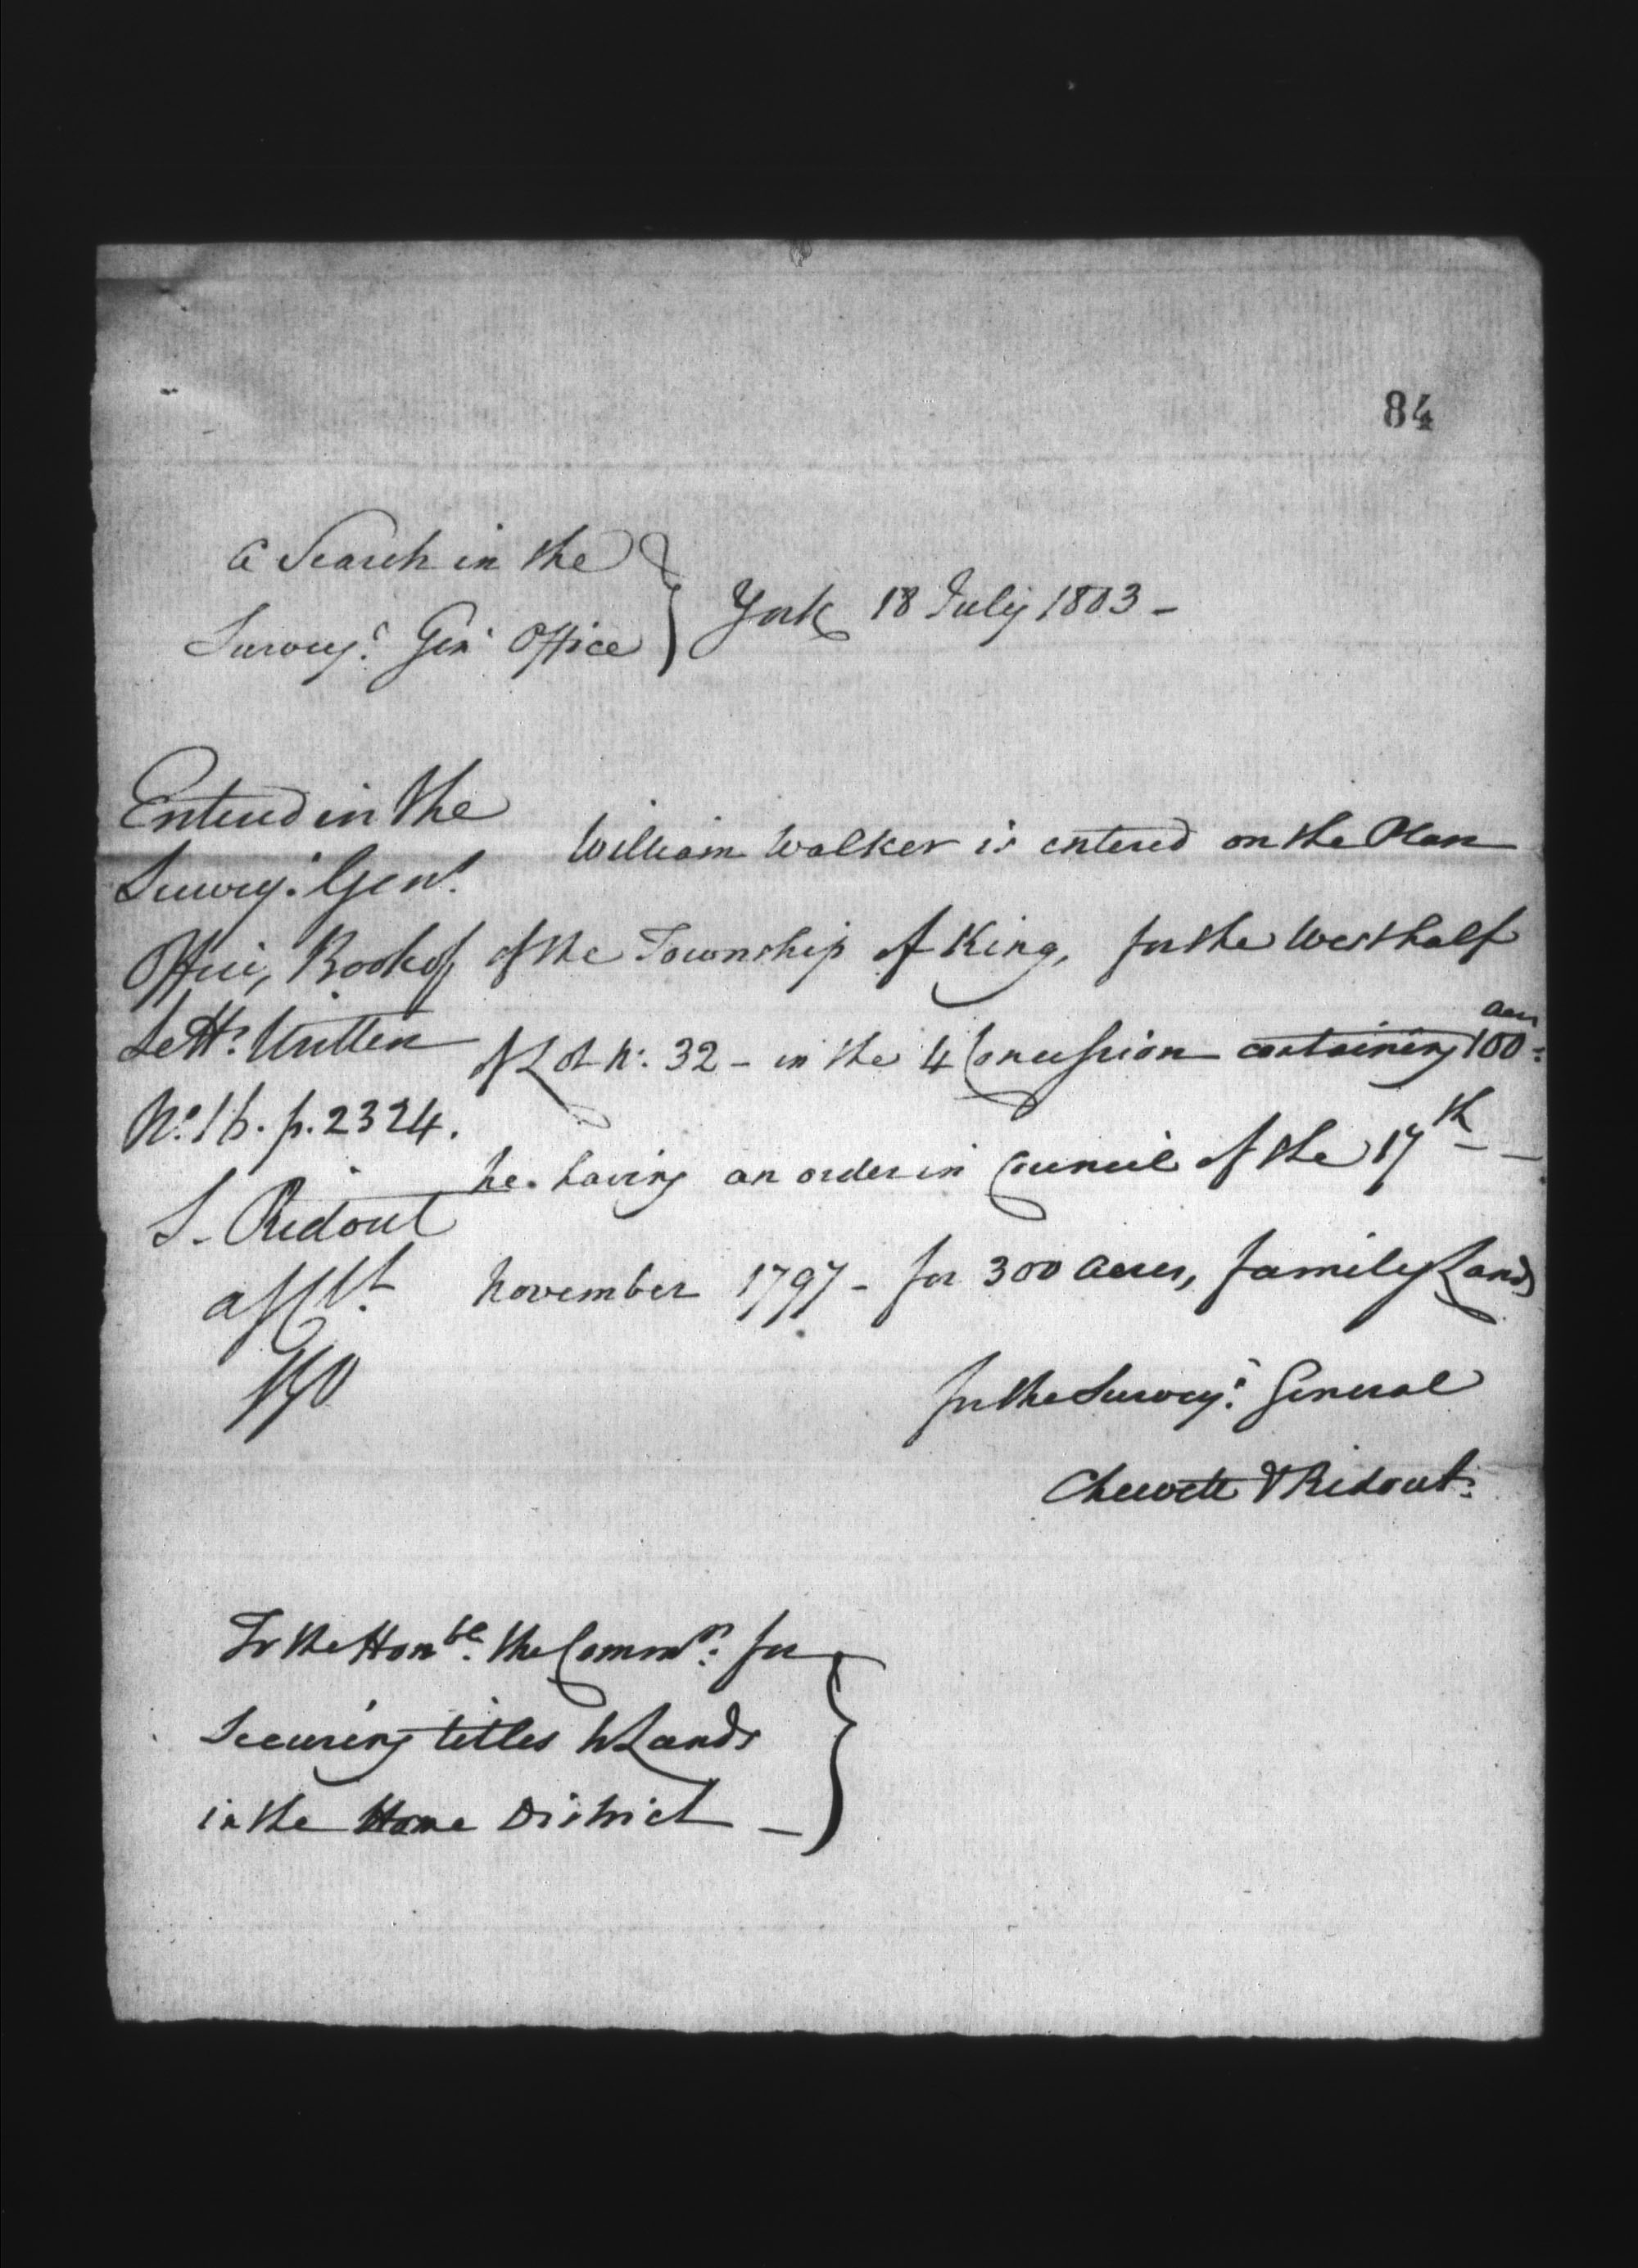 84
a Search in the
Survey.r Gen.l Office } York 18 July 1803 -
William Walker is entered on the Plan
of the Township of King, for the West half
of Lot No: 32 - in the 4 Concession containing 100 acres
he having an order in Council of the 17th -
November 1797 - for 300 acres, family Lands
for the Survey.r General
Chewett & Ridout.
Entered in the
Survey.r Gen.l
Office, Book of
Letts. Written
No. 16. p. 2324.
S. Ridout
To the Honble. the Commrs. for
Securing titles to Lands
in the Home District -